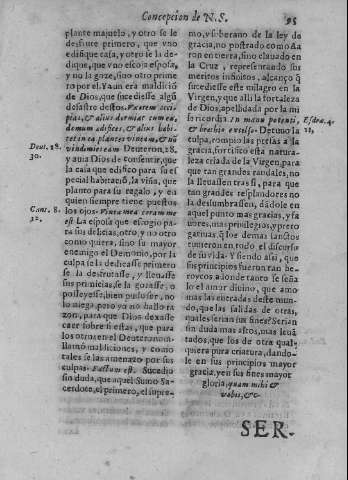 Concepcion de N. S. 95
plante majuelo, y otro se le
desfrute primero, que vno
edifique casa, y otro se la de-
dique, que vno escoja esposa,
y no la goze, sino otro prime
ro por el. Ya un era maldició
de Dios, que sucediesse algũ
desastre destos. Vxorem acci-
pias, & alius dormiat cum ea,
domum ædifices, & alius habi
tet in ea plantes vineam, & nõ
vindemies eam Deuteron. 28.
y auia Dios de consentir, que
la casa que edifico para su es
pecial habitació, la viña, que
planto para su regalo, y en
quien siempre tiene puestos
los ojos. Vinea mea coram me
est La esposa que escogio pa-
ra sus delicias, otro, y no otro
como quiera, sino su mayor
enemigo el Demonio, por la
culpa se la dedicasse primero
se la desfrutasse, y lleuasse
sus primicias, se la gozasse, o
posseyesse, bien pudo ser, no
lo niega pero vo no hallo ra
zon, para que Dios dexasse
caer sobre si estas, que para
los otros en el Deuteronomio
llamó maldiciones, y como
tales se las amenazo por sus
culpas. Factum est. Sucedio
sin duda, que aquel Sumo Sa-
cerdote, el primero, el supre-
Deut. 28.
30.
Cant. 8.
12.
mo, y soberano de la ley de
gracia, no postrado como Aa
ron en tierra, sino clauado en
la Cruz, representando sus
meritos infinitos, alcanço q̃
sucediesse este milagro en la
Virgen, y que alli la fortaleza
de Dios, apellidada por la mi
sericordia In manu potenti,
& brachio excelso. Detuuo la
culpa, rompio las presas a la
gracia, fortifico esta natura-
leza criada de la Virgen, para
que tan grandes raudales, no
la lleuassen tras si, para que
tan grandes resplandores no
la deslumbrassen, dádole en
aquel punto mas gracias, y fa
uores, mas priuilegios, y prero
gatiuas, q̃ los demas sanctos
tuuieron en todo el discurso
de su vida. Y siendo assi, que
sus principios fueron tan he-
roycos a donde tanto se seña
lo el amor diuino, que amo
mas las entradas deste mun-
do, que las salidas de otras,
quales serian sus fines? Serian
sin duda mas altos, mas leuã
tados, que los de otra qual-
quiera pura criatura, dando-
le en sus principios mayor
gracia, y en sus fines mayor
gloria, quam mihi &
vobis, &c.
Esdræ. 4.
SER-